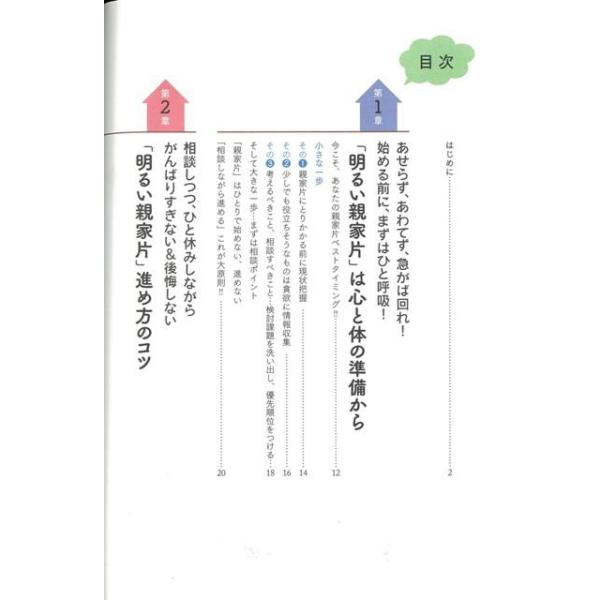 目次
はじめに…………2
第1章
あせらず、あわてず、急がば回れ！
始める前に、まずはひと呼吸！
「明るい親家片」は心と体の準備から
今こそ、あなたの親家片ベストタイミング!!…………12
小さな一歩
その❶ 親家片にとりかかる前に現状把握…………14
その❷ 少しでも役立ちそうなものは貪欲に情報収集…………16
その❸ 考えるべきこと、相談すべきこと…検討課題を洗い出し、優先順位をつける…18
そして大きな一歩…まずは相談ポイント
「親家片」はひとりで始めない、進めない
「相談しながら進める」これが大原則!!…………20
第2章
相談しつつ、ひと休みしながら
がんばりすぎない＆後悔しない
「明るい親家片」進め方のコツ